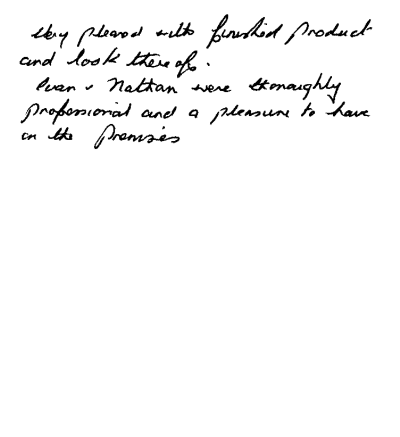 Very pleased with finished product
and look thereof.
Evan & Nathan were thoroughly
professional and a pleasure to have
on the Premises